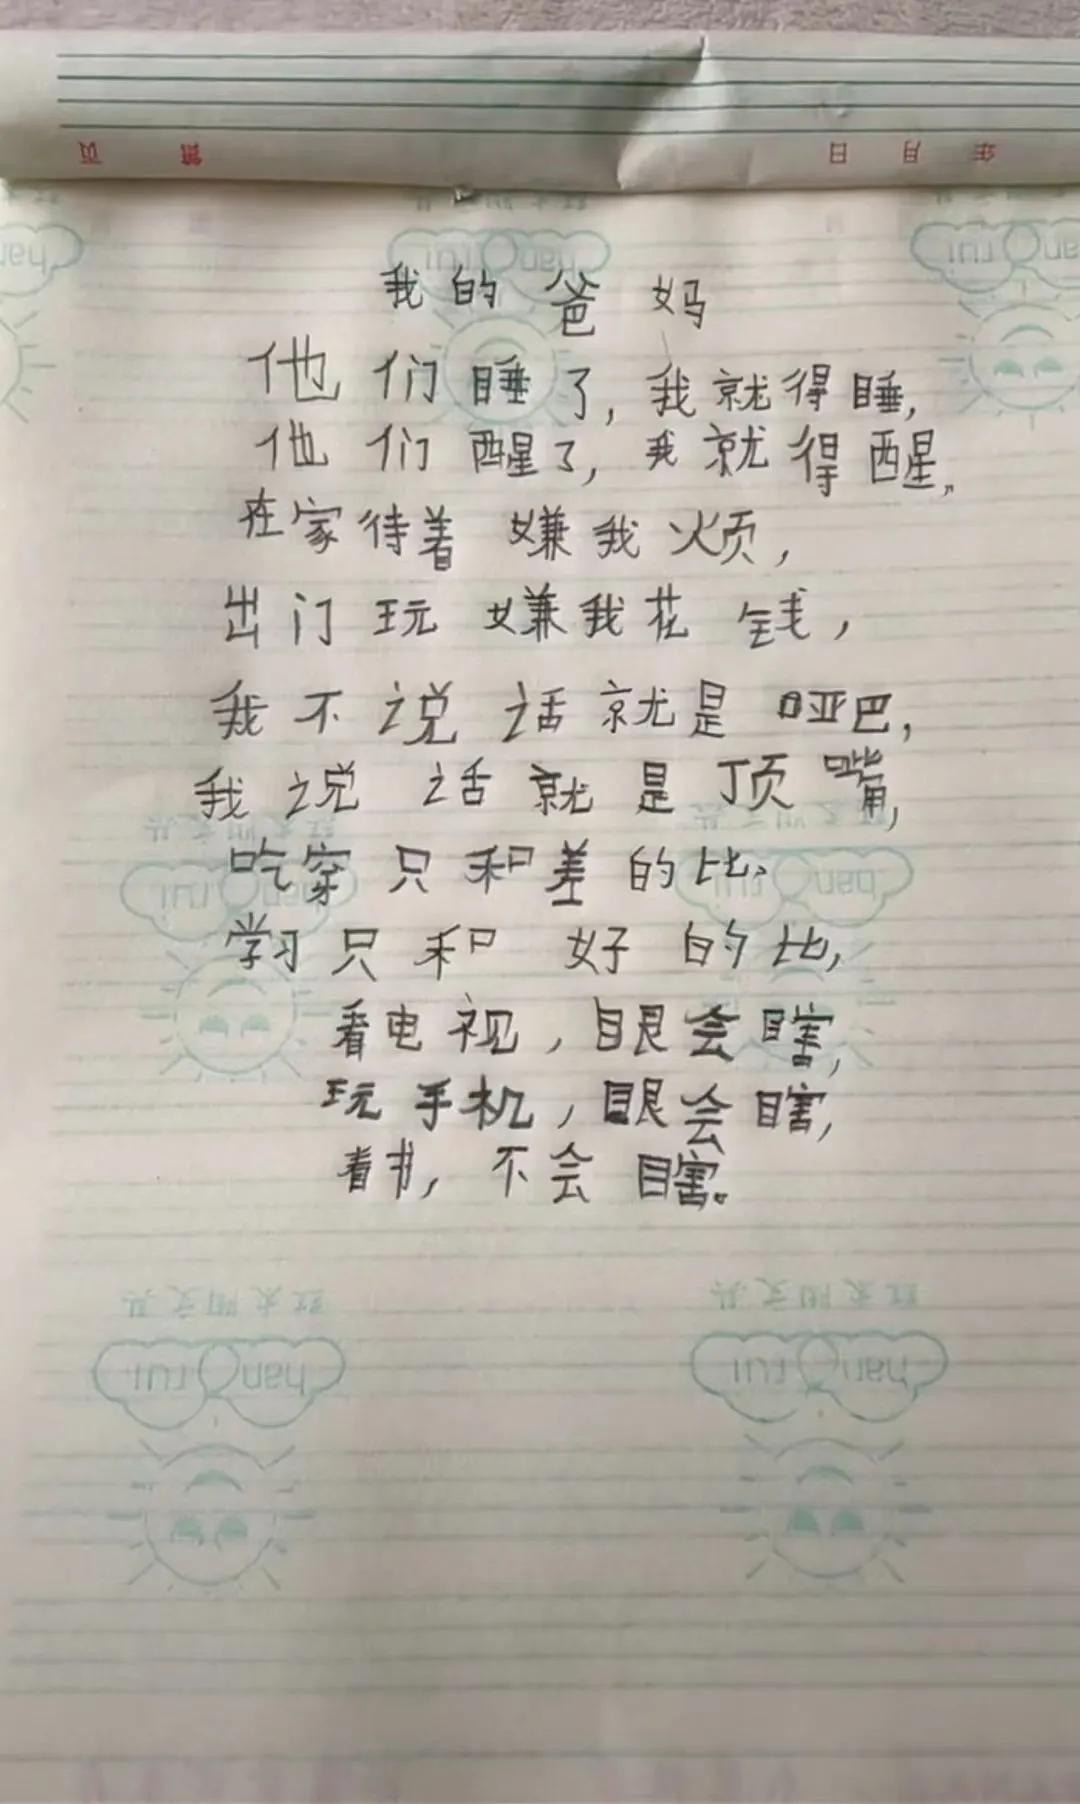 页 第 日 月 年
我的爸妈
他们睡了,我就得睡,
他们醒了,我就得醒,
在家待着嫌我烦,
出门玩嫌我花钱,
我不说话就是哑巴,
我说话就是顶嘴,
吃穿只和差的比,
学习只和好的比,
看电视,眼会瞎,
玩手机,眼会瞎,
看书,不会瞎。